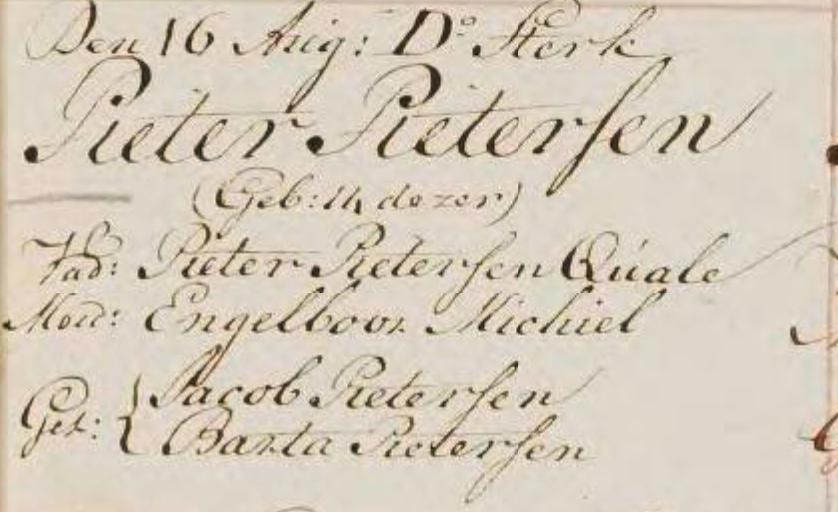 Den 16 Aug: Do Sterk
Pieter Pietersen
(Geb: 14 dezer)
Vad: Pieter Pietersen Quale
Moed: Engelboor Michiel
Get: { Jacob Pietersen
Barta Pietersen